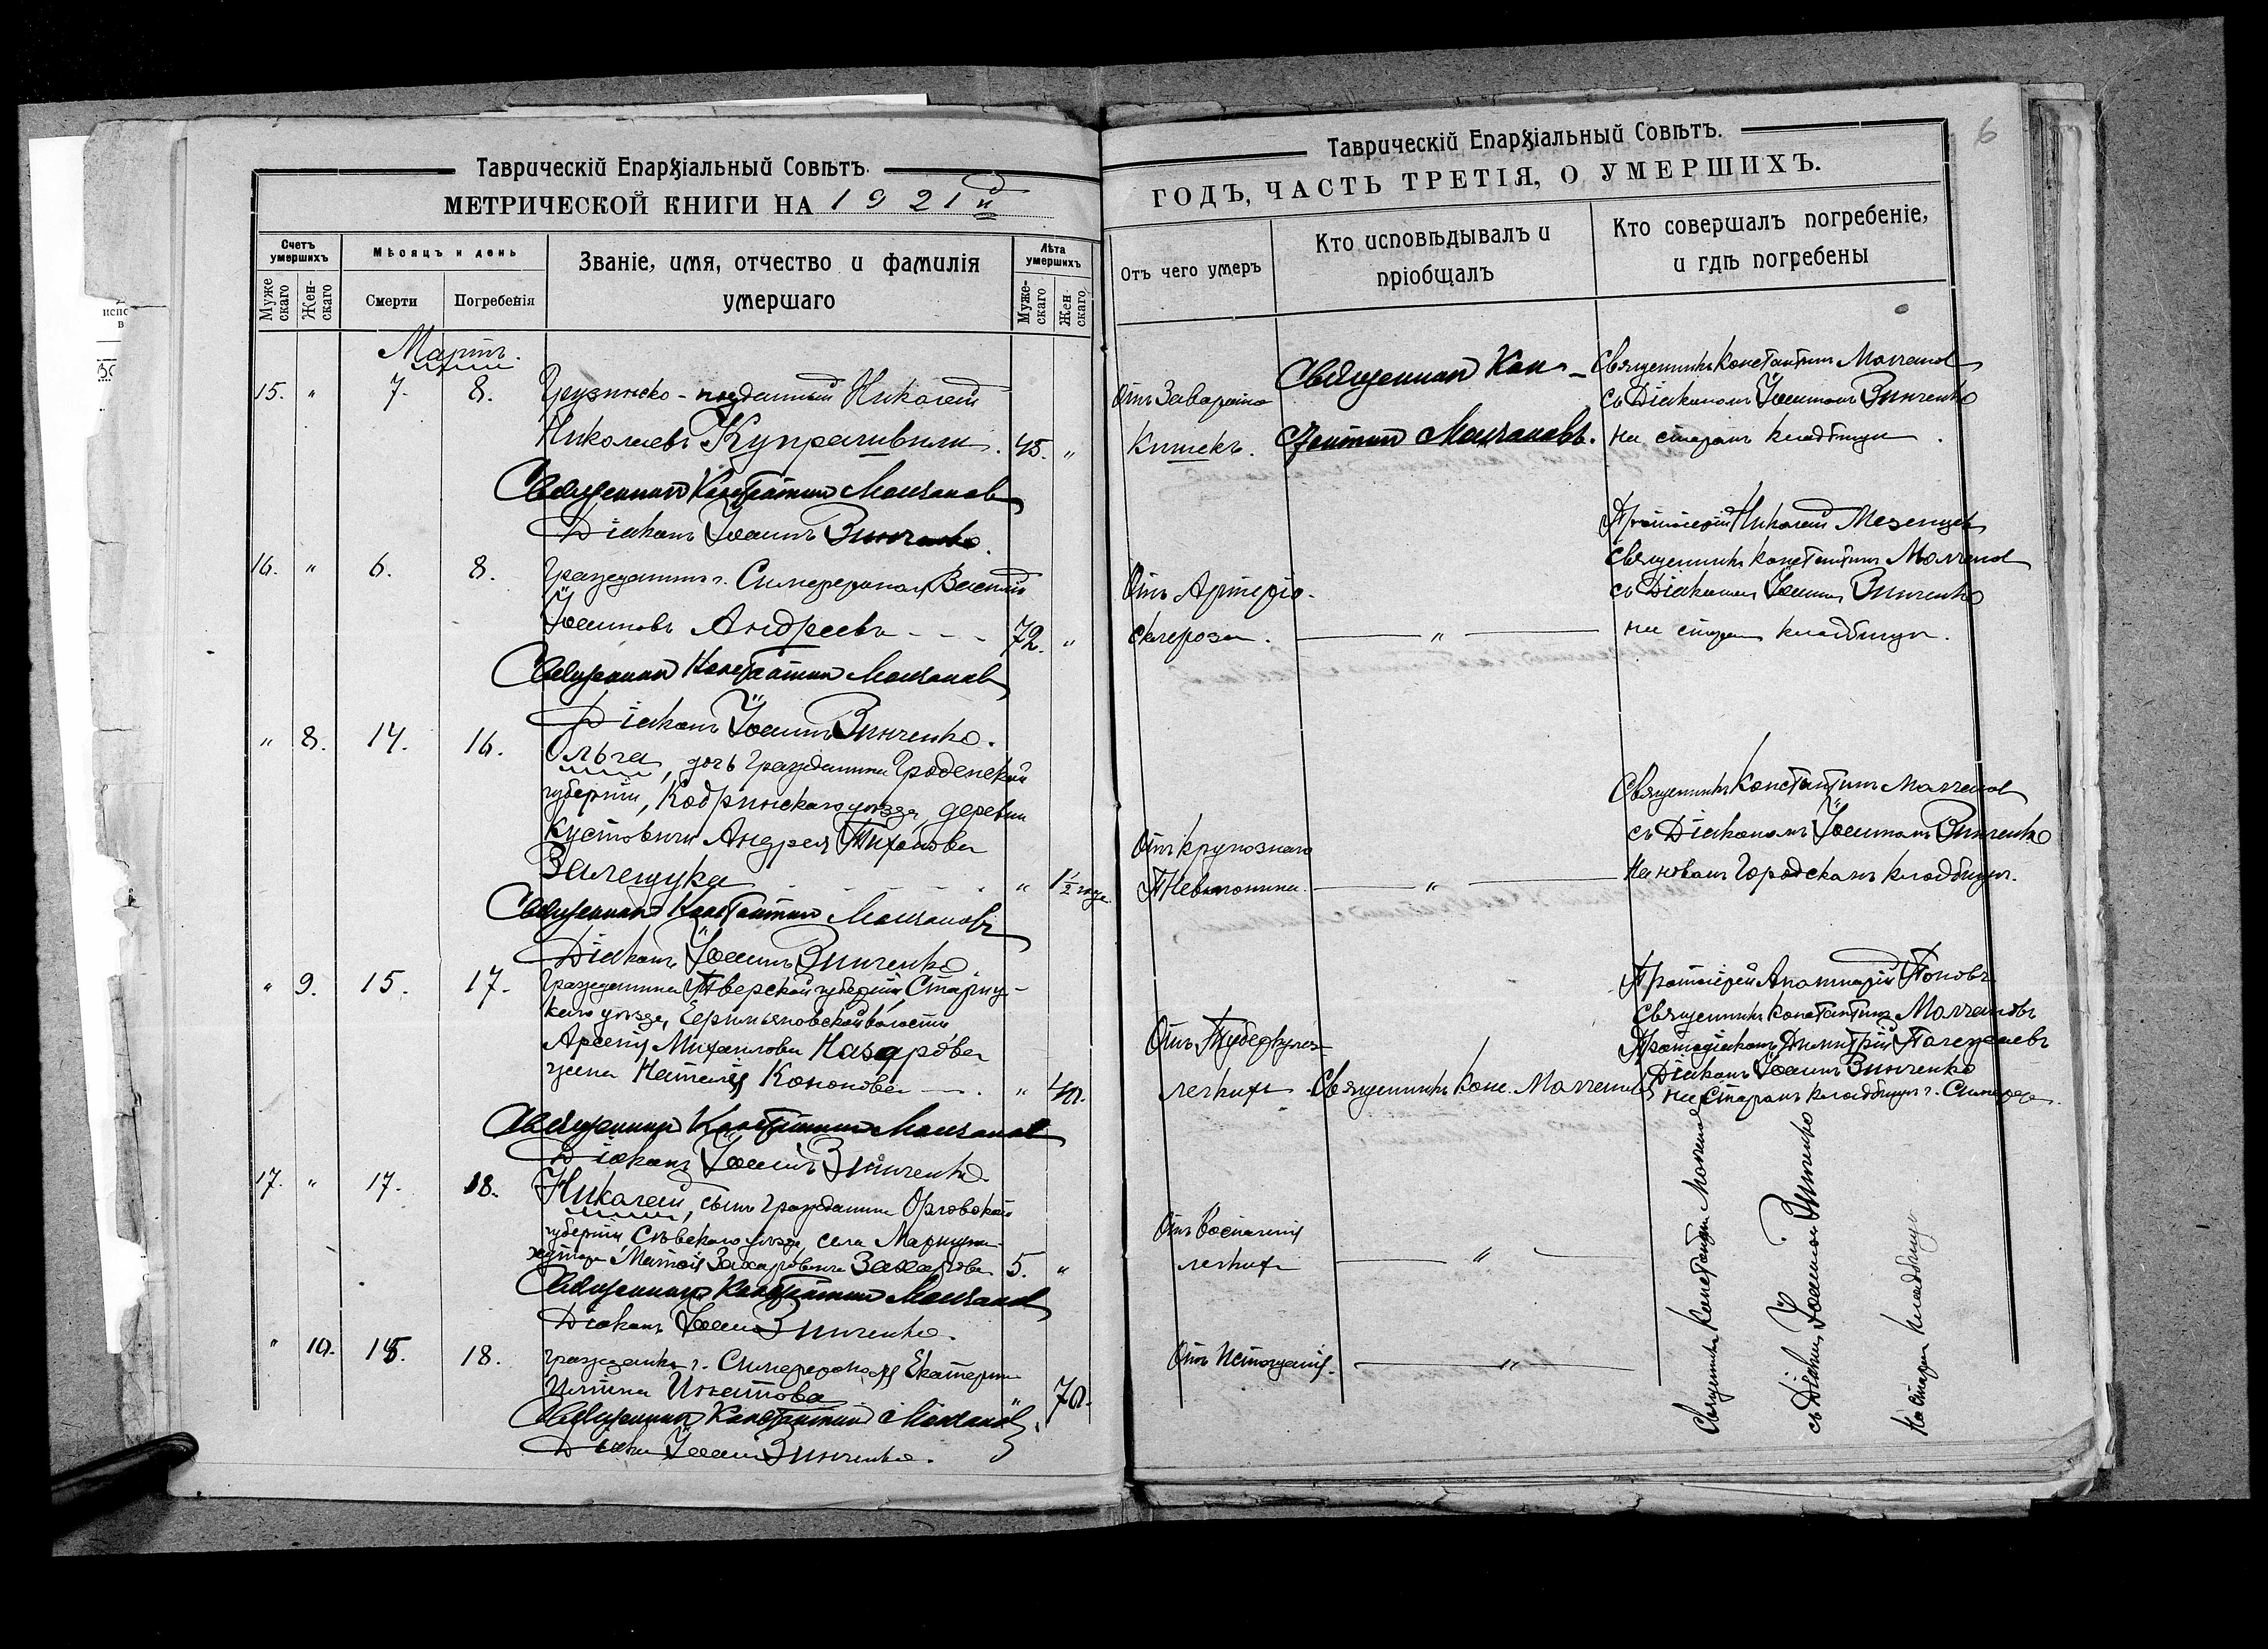 Таврическій Епархіальный Совѣтъ.
МЕТРИЧЕСКОЙ КНИГИ НА 1921й
Счетъ умершихъ
Мѣсяцъ и день
Званіе, имя, отчество и фамилія умершаго
Лѣта умершихъ
Мужескаго
Женскаго
Смерти
Погребенія
Мужескаго
Женскаго
Мартъ.
15. " 7. 8. Грузинско-подданный Николай
Николаевъ Купрашвили. 45. "
Священникъ Константинъ Молчановъ
Діаконъ Іоаннъ Зинченко.
16. " 6. 8. Гражданинъ г. Симферополя Василій
Іоанновъ Андреевъ - - - 72. "
Священникъ Константинъ Молчановъ
Діаконъ Іоаннъ Зинченко.
" 8. 14. 16. Ольга, дочь гражданина Гроденской
губерніи, Кобринскаго уѣзда, деревни
Кустовичи Андрея Тихонова
Залещука " 1 1/2 года
Священникъ Константинъ Молчановъ
Діаконъ Іоаннъ Зинченко
" 9. 15. 17. Гражданина Тверской губерніи Стариц-
каго уѣзда, волости
Арсенія Михаилова Назарова
жена Наталія Кононова " 40.
Священникъ Константинъ Молчановъ
Діаконъ Іоаннъ Зинченко.
17. " 17. 18. Николай, сынъ гражданина Орловской
губерніи Сѣвскаго уѣзда, села
Захарова 5. "
Священникъ Константинъ Молчановъ
Діаконъ Іоаннъ Зинченко.
" 10. 15. 18. Гражданка г. Симферополя Екатерина
Игнатова " 70.
Священникъ Константинъ Молчановъ
Діаконъ Іоаннъ Зинченко.
6
Таврическій Епархіальный Совѣтъ.
ГОДЪ, ЧАСТЬ ТРЕТІЯ, О УМЕРШИХЪ.
Отъ чего умеръ
Кто исповѣдывалъ и пріобщалъ
Кто совершалъ погребеніе, и гдѣ погребены
Отъ Заворота
Кишекъ.
Священникъ Кон-
стантинъ Молчановъ.
Священникъ Константинъ Молчановъ
съ Діакономъ Іоанномъ Зинченко
на старомъ кладбищѣ.
Отъ Артеріо-
склероза. — " —
Протоіерей Николай Мезенцевъ
Священникъ Константинъ Молчановъ
съ Діакономъ Іоанномъ Зинченко
на старомъ кладбищѣ.
Отъ крупознаго
Пневмоніи. — " —
Священникъ Константинъ Молчановъ
съ Діакономъ Іоанномъ Зинченко
На новомъ Городскомъ кладбищѣ.
Отъ Туберкулеза
легкихъ
Священникъ Конс. Молчановъ
Протоіерей Поповъ
Священникъ Константинъ Молчановъ
Протодіаконъ Димитрій Полежаевъ
Діаконъ Іоаннъ Зинченко
на Старомъ кладбищѣ г. Симфероп.
Отъ Воспаленія
легкихъ — " —
Отъ Истощенія. — " —
Священникъ Константинъ Молчановъ
съ Діакономъ Іоанномъ Зинченко
На Старомъ кладбищѣ